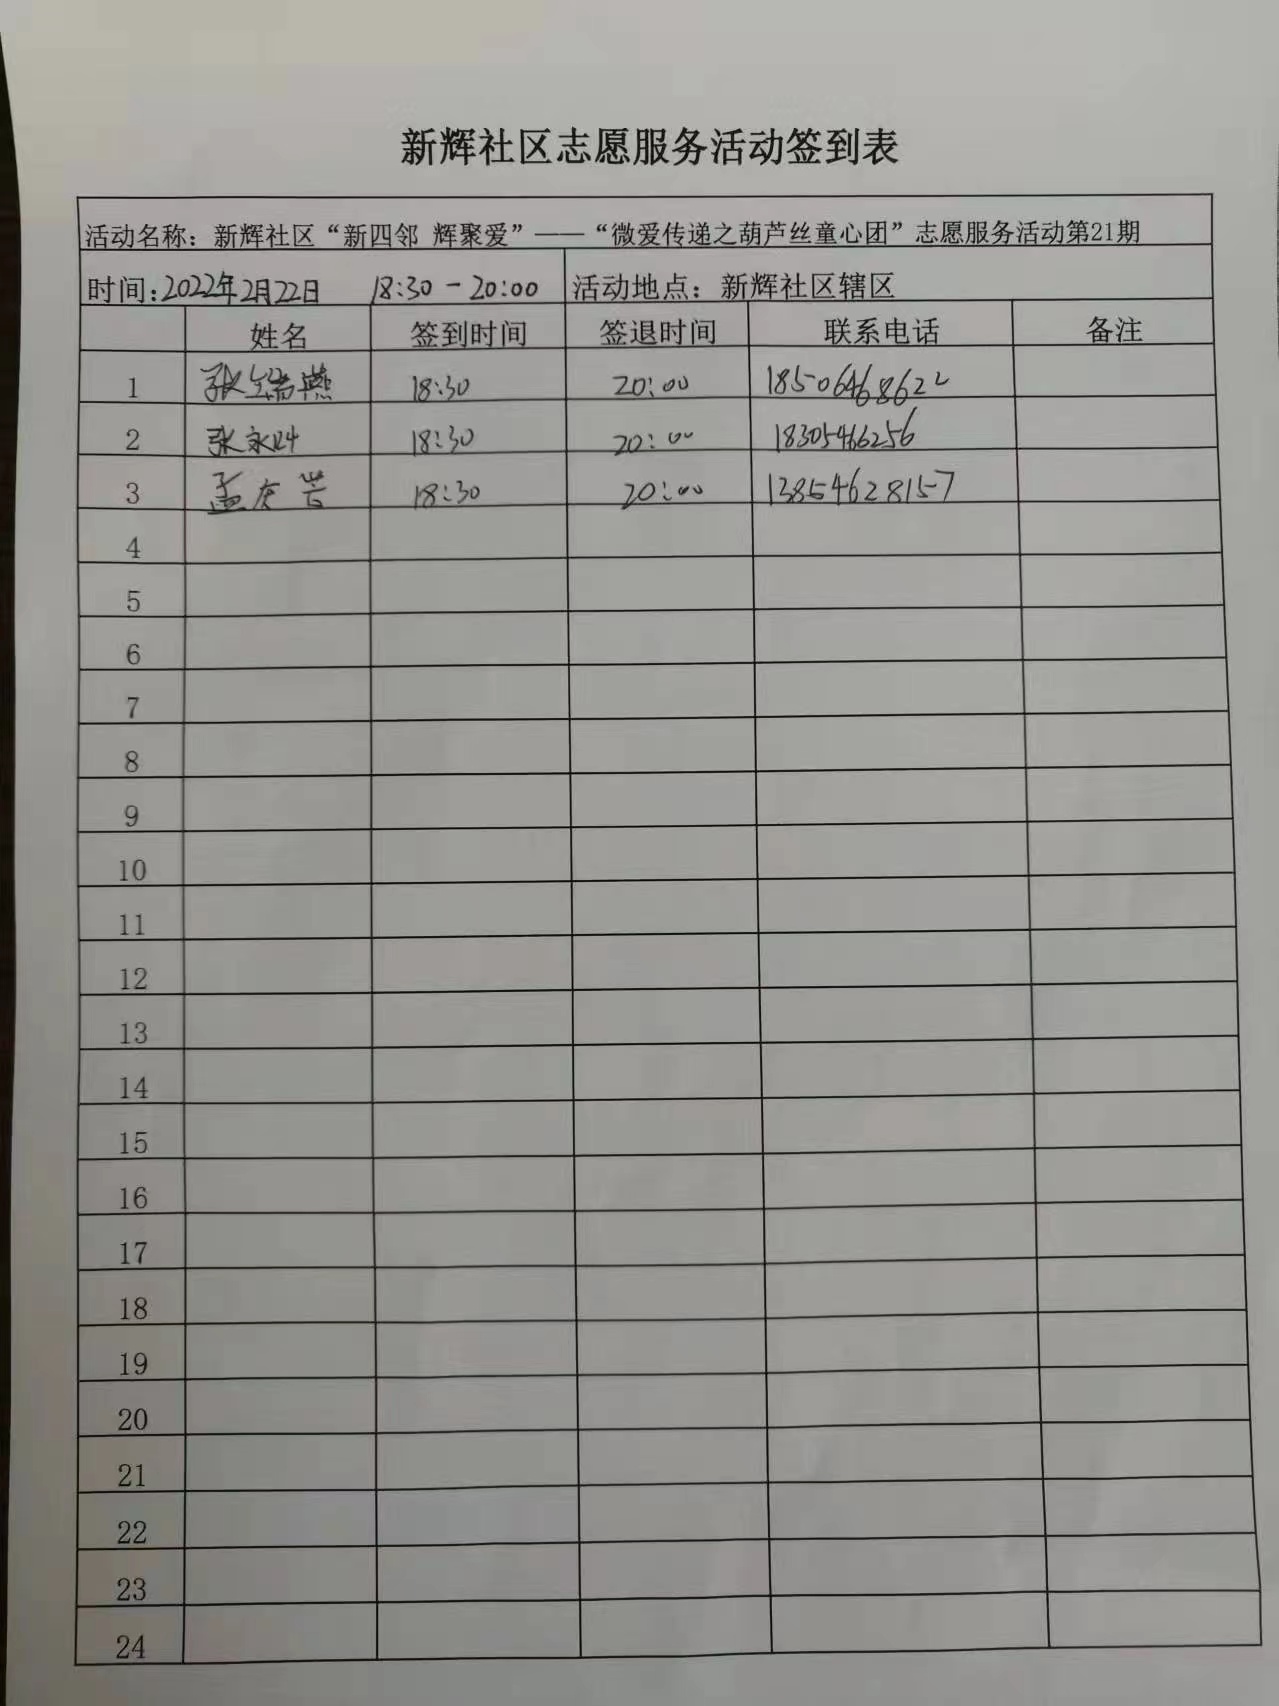 新辉社区志愿服务活动签到表
活动名称：新辉社区“新四邻 辉聚爱”——“微爱传递之葫芦丝童心团”志愿服务活动第21期
时间：2022年2月22日 18:30-20:00 活动地点：新辉社区辖区
姓名 签到时间 签退时间 联系电话 备注
1 张瑞燕 18:30 20:00 18506468622
2 张永 18:30 20:00 18305466256
3 孟庆芸 18:30 20:00 13854628157
4
5
6
7
8
9
10
11
12
13
14
15
16
17
18
19
20
21
22
23
24